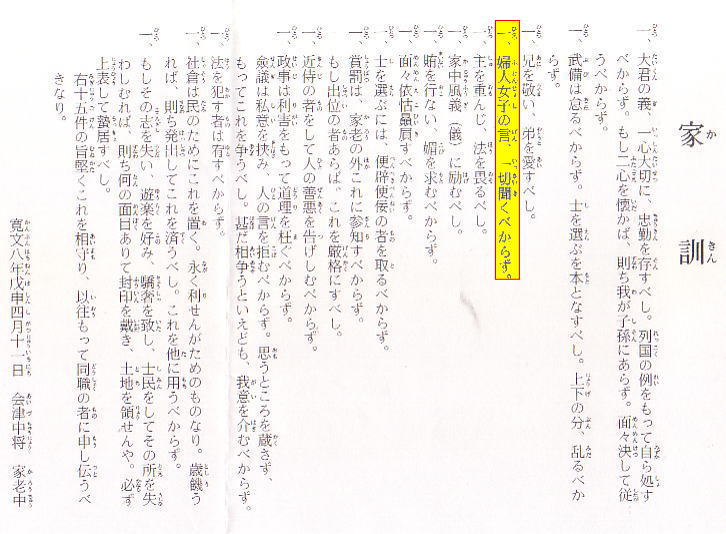 家訓
一、大君の義、一心大切に、忠勤を存すべし。列国の例をもって自ら処す
べからず。もし二心を懐かば、則ち我が子孫にあらず。面々決して従
うべからず。
一、武備は怠るべからず。士を選ぶを本となすべし。上下の分、乱るべか
らず。
一、兄を敬い、弟を愛すべし。
一、婦人女子の言、一切聞くべからず。
一、主を重んじ、法を畏るべし。
一、家中風義（儀）に励むべし。
一、賄を行ない、媚を求むべからず。
一、面々依怙贔屓すべからず。
一、士を選ぶには、便辟便佞の者を取るべからず。
一、賞罰は、家老の外これに参知すべからず。
もし出位の者あらば、これを厳格にすべし。
一、近侍の者をして人の善悪を告げしむべからず。
一、政事は利害をもって道理を枉ぐべからず。
僉議は私意を挟み、人の言を拒むべからず。思うところを蔵さず、
もってこれを争うべし。甚だ相争うといえども、我意を介むべからず。
一、法を犯す者は宥すべからず。
一、社倉は民のためにこれを置く。永く利せんがためのものなり。歳饑う
れば、則ち発出してこれを済うべし。これを他に用うべからず。
一、もしその志を失い、遊楽を好み、驕奢を致し、士民をしてその所を失
わしむれば、則ち何の面目ありて封印を戴き、土地を領せんや。必ず
上表して蟄居すべし。
右十五件の旨堅くこれを相守り、以往もって同職の者に申し伝うべ
きなり。
寛文八年戊申四月十一日　会津中将　家老中